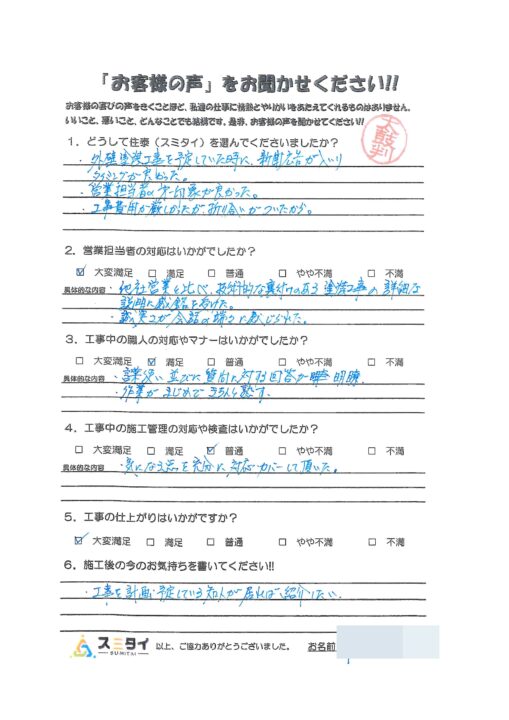 「お客様の声」をお聞かせください!!
お客様の喜びの声をきくことほど、私達の仕事に情熱とやりがいをあたえてくれるものはありません。
いいこと、悪いこと、どんなことでも結構です。是非、お客様の声を聞かせてください!!
1．どうして住泰（スミタイ）を選んでくださいましたか？
・外壁塗装工事を予定していた時に、新聞広告が入り
タイミングが良かった。
・営業担当者の第一印象が良かった。
・工事費用が厳しかったが、折り合いがついたから。
2．営業担当者の対応はいかがでしたか？
☑ 大変満足 □ 満足 □ 普通 □ やや不満 □ 不満
具体的な内容 ・他社営業と比べ、技術的な裏付けのある塗装工事の詳細な
説明に感銘を受けた。
・誠実さが会話の端々に感じられた。
3．工事中の職人の対応やマナーはいかがでしたか？
□ 大変満足 ☑ 満足 □ 普通 □ やや不満 □ 不満
具体的な内容 ・言葉使い並びに質問に対する回答が明瞭。
・作業がまじめで
4．工事中の施工管理の対応や検査はいかがでしたか？
□ 大変満足 □ 満足 ☑ 普通 □ やや不満 □ 不満
具体的な内容 ・気になる点を充分に対応・カバーして頂いた。
5．工事の仕上がりはいかがですか？
☑ 大変満足 □ 満足 □ 普通 □ やや不満 □ 不満
6．施工後の今のお気持ちを書いてください!!
・工事を計画・予定している知人が居れば紹介したい。
スミタイ SUMITAI 以上、ご協力ありがとうございました。 お名前